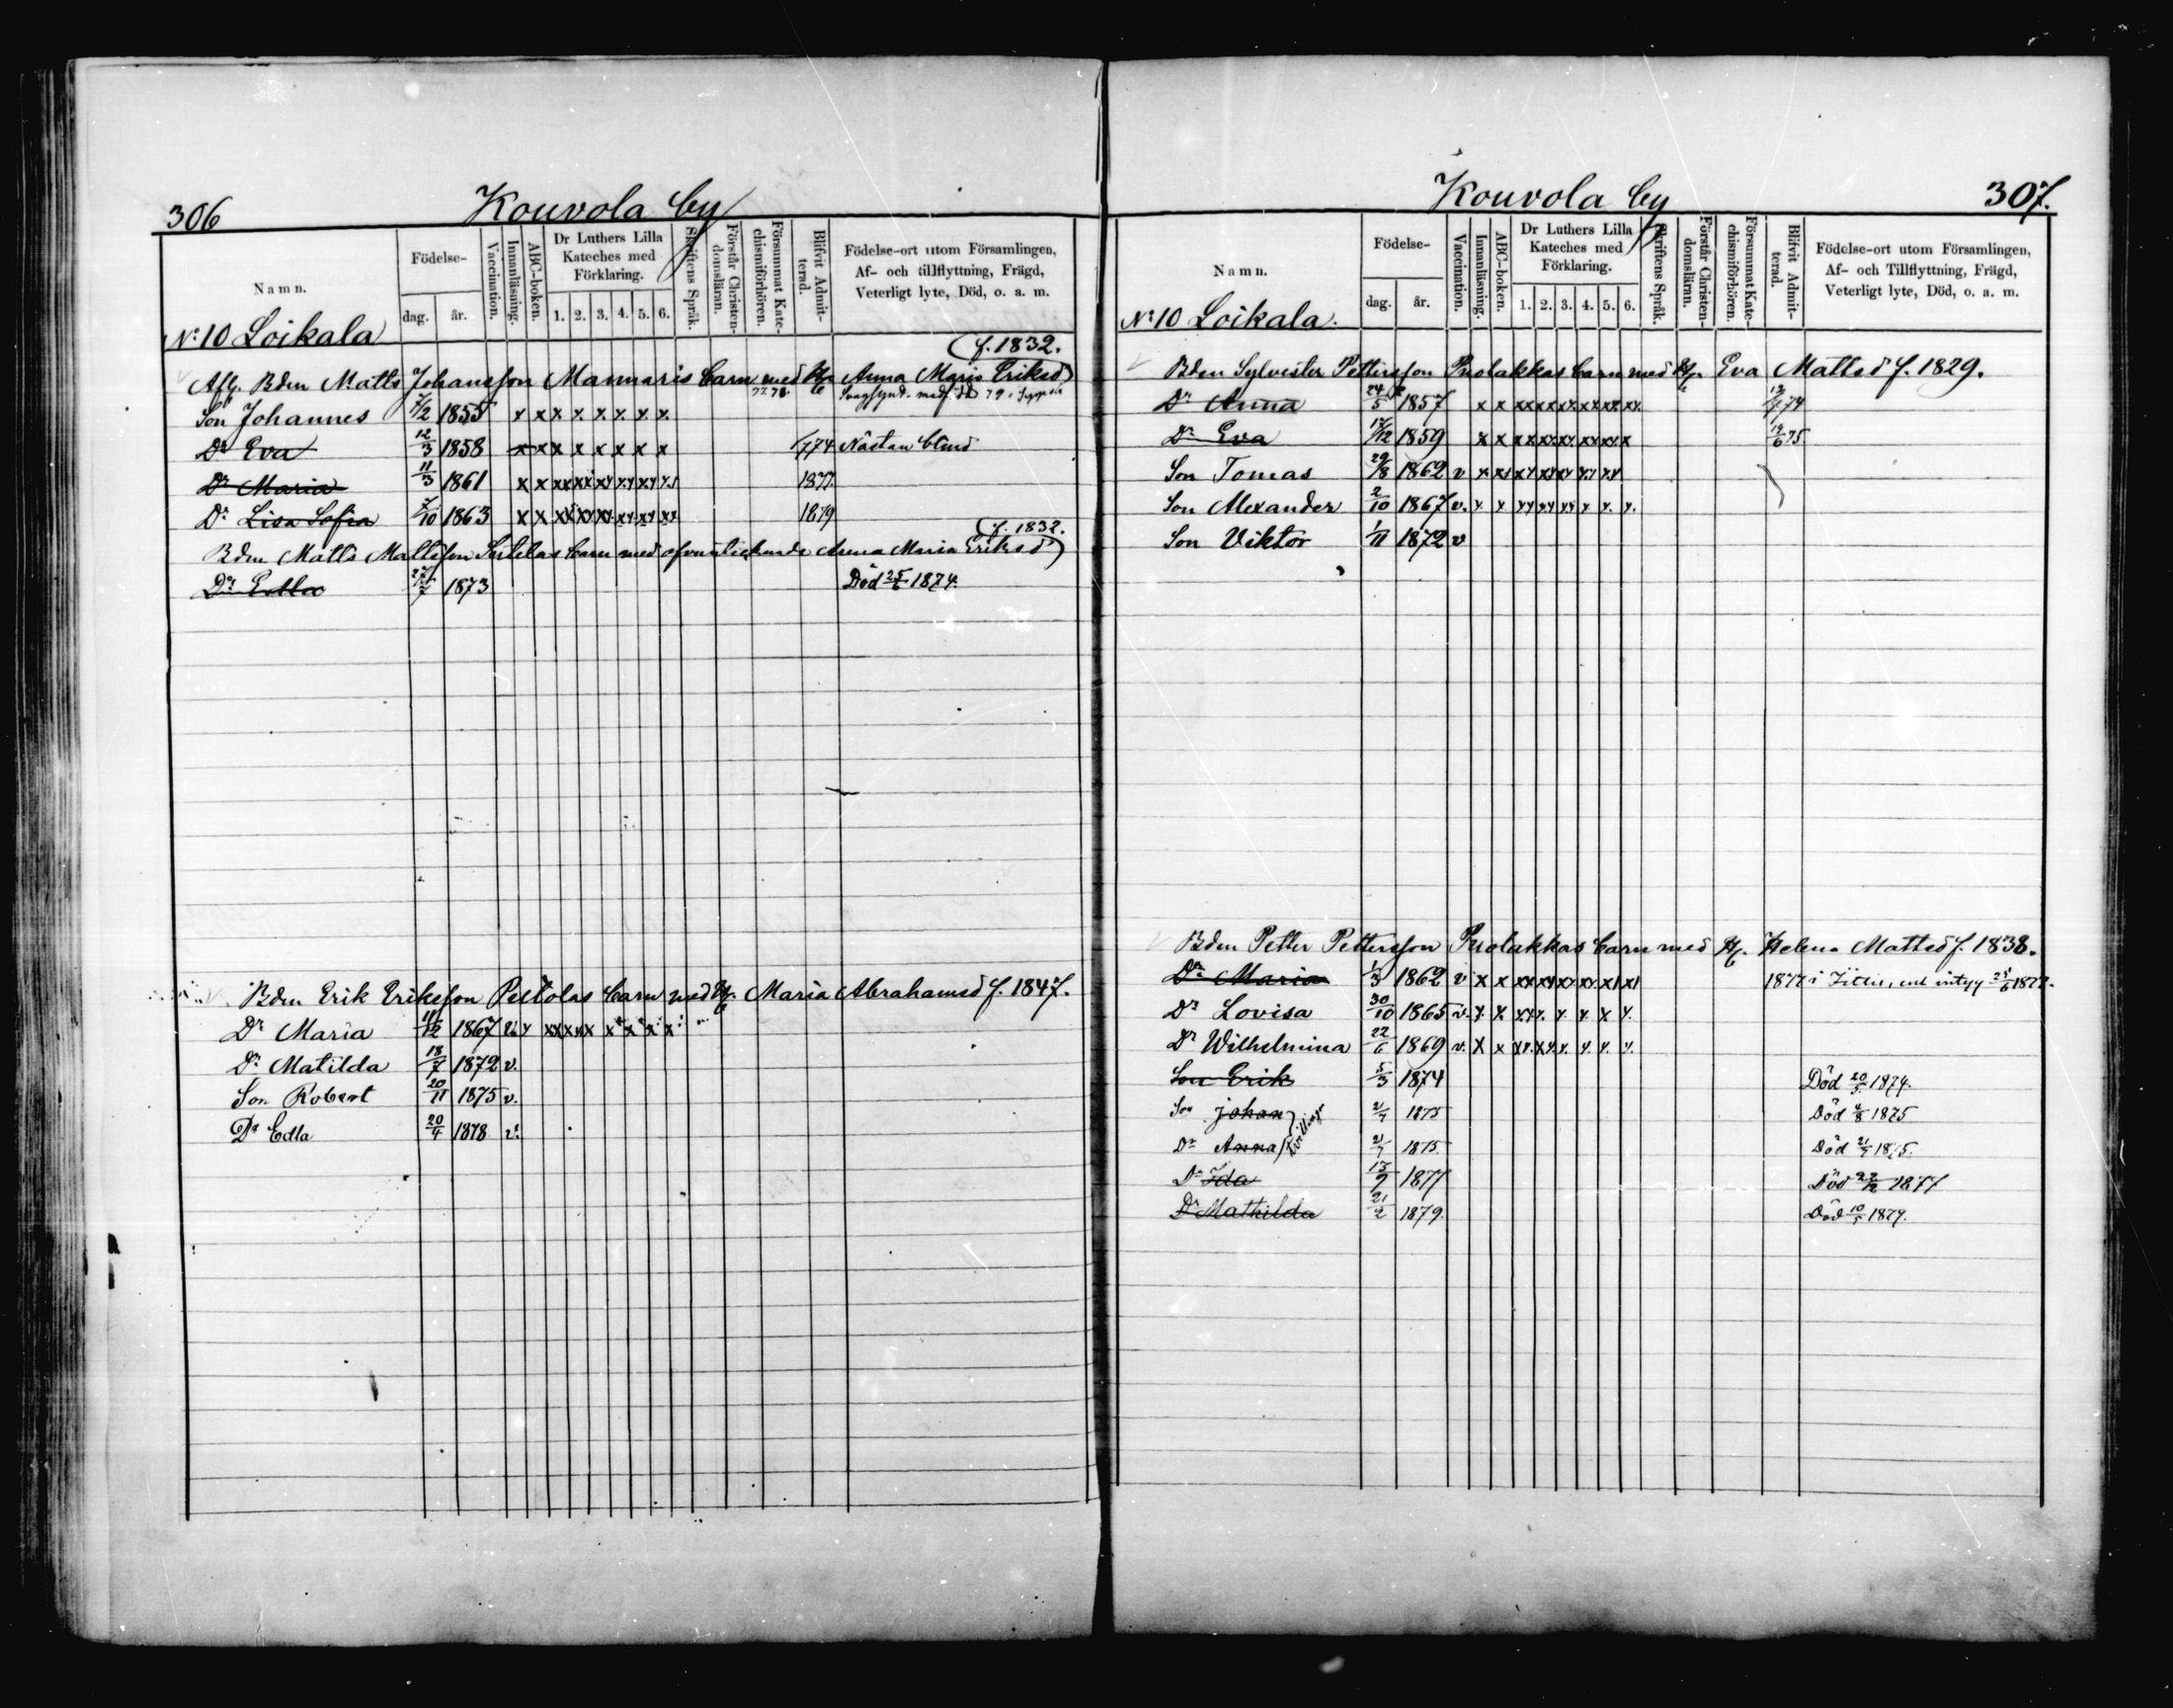 306
Kouvola by
Namn.
Födelse-
dag.
år.
Vaccination.
Innanläsning.
ABC-boken.
Dr Luthers Lilla
Kateches med
Förklaring.
1. 2. 3. 4. 5. 6.
Skriftens Språk.
Förstår Christen-
domsläran.
Försummat Kate-
chismiförhören.
Blifvit Admit-
terad.
Födelse-ort utom Församlingen,
Af- och tillflyttning, Frägd,
Veterligt lyte, Död, o. a. m.
N:10 Loikala
f. 1832.
Afl. Bden Matts Johansson Mannaris barn med Anna Maria Eriksd
Son Johannes 1855 x x x x x x x x
Dr Eva 12/3 1858 x x x x x x x x 774 Nästan blind
Dr Maria 11/3 1861 x x xx xx xx xx xx 1877
Dr Lisa Sofia 1863 x x xx xx xx xx xx xx 1879
f. 1832.
Bden Matts Mattsson barn med Anna Maria Eriksd
Dr Edla 27/7 1873 Död 25/6 1874.
Bden Erik Eriksson barn med Hu. Maria Abrahamsd f. 1847.
Dr Maria 11/12 1867
Dr Matilda 18/7 1872 v.
Son Robert 20/11 1875 v.
Dr Edla 20/4 1878 v.
Kouvola by
307.
Namn.
Födelse-
dag.
år.
Vaccination.
Innanläsning.
ABC-boken.
Dr Luthers Lilla
Kateches med
Förklaring.
1. 2. 3. 4. 5. 6.
Skriftens Språk.
Förstår Christen-
domsläran.
Försummat Kate-
chismiförhören.
Blifvit Admit-
terad.
Födelse-ort utom Församlingen,
Af- och Tillflyttning, Frägd,
Veterligt lyte, Död, o. a. m.
N:10 Loikala.
Bden Sylvester Pettersson Puolakkas barn med Hu. Eva Mattsd f. 1829.
Dr Anna 24/5 1857 x x xx xx xx xx xx xx 12/7 74
Dr Eva 17/12 1859 x x xx xx xx xx xx x 75
Son Tomas 29/8 1862 v
Son Alexander 2/10 1867 v.
Son Viktor 1/11 1872 v
Bden Petter Pettersson Puolakkas barn med Hu. Helena Mattsd f. 1838.
Dr Maria 1/3 1862 v x x 1877 i
Dr Lovisa 30/10 1865 v.
Dr Wilhelmina 22/6 1869 v. x x
Son Erik 5/3 1874 Död 20/5 1874.
Son Johan 21/7 1875 Död 4/8 1875
Tvillingar
Dr Anna 21/7 1875. Död 21/7 1875.
Dr Ida 1877 Död 1877
Dr Mathilda 21/2 1879. Död 10/5 1879.